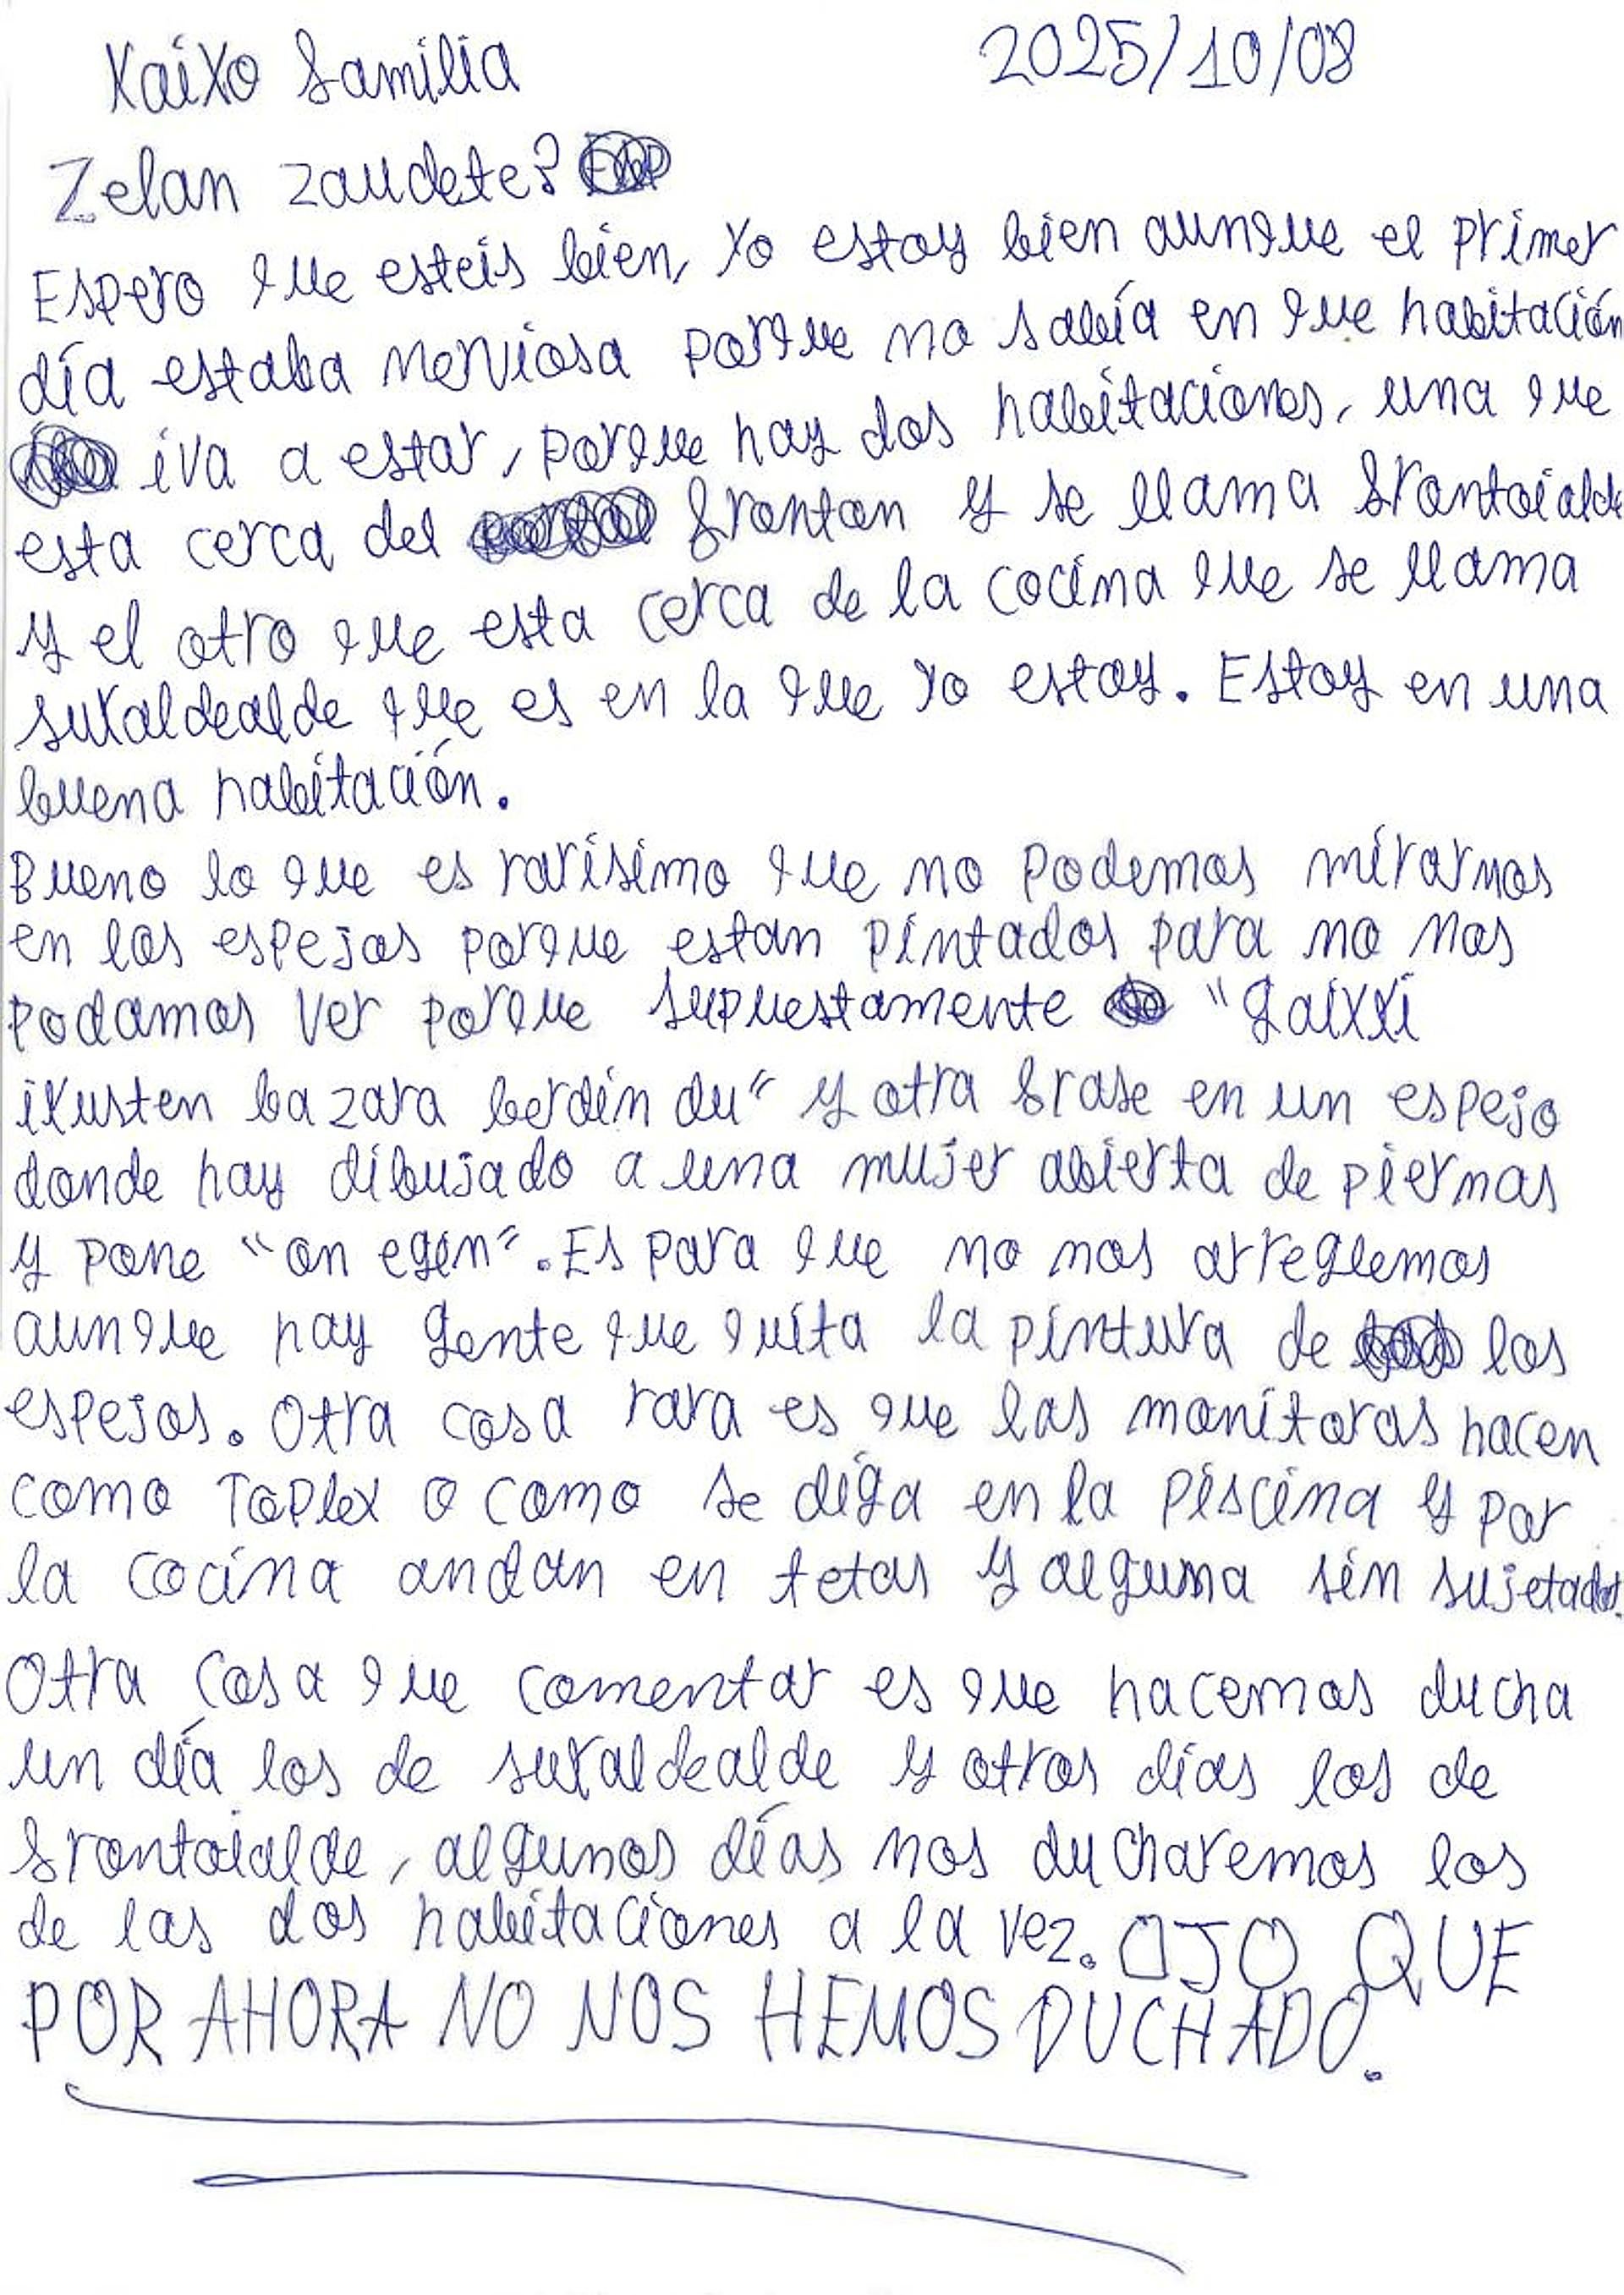 Kaixo familia 2025/10/08
Zelan zaudete?
Espero que esteis bien, yo estoy bien aunque el primer
día estaba nerviosa porque no sabía en que habitación
iva a estar, porque hay dos habitaciones, una que
esta cerca del fronton y se llama frontoialde
y el otro que esta cerca de la cocina que se llama
sukaldealde que es en la que yo estoy. Estoy en una
buena habitación.
Bueno lo que es rarísimo que no podemos mirarnos
en los espejos porque estan pintados para no nos
podamos ver porque supuestamente "gaixki
ikusten ba zara berdin du" y otra frase en un espejo
donde hay dibujado a una mujer abierta de piernas
y pone "on egin". Es para que no nos arreglemos
aunque hay gente que quita la pintura de los
espejos. Otra cosa rara es que las monitoras hacen
como Toplex o como se diga en la piscina y por
la cocina andan en tetas y alguna sin sujetador.
Otra cosa que comentar es que hacemos ducha
un día los de sukaldealde y otros días los de
frontoialde, algunos días nos ducharemos los
de las dos habitaciones a la vez. OJO QUE
POR AHORA NO NOS HEMOS DUCHADO.